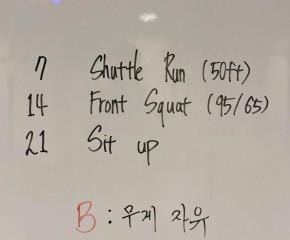 7 Shuttle Run (50ft)
14 Front Squat (95/65)
21 Sit up
B : 무게 자유